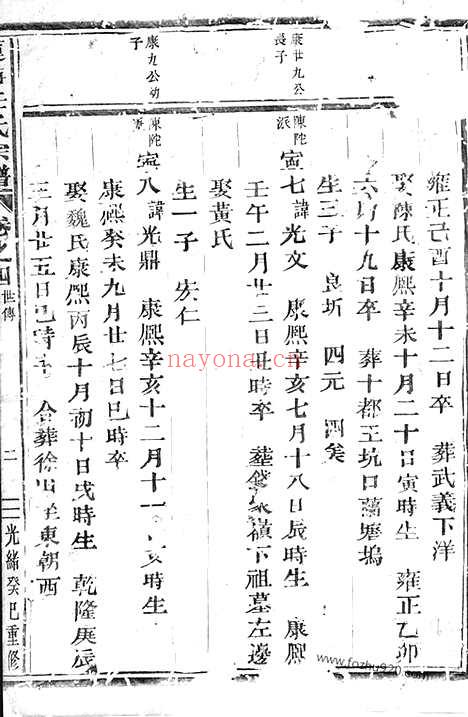 雍正己酉十月十二日卒 葬武義下洋
娶陳氏康熙辛未十月二十日寅時生 雍正乙卯
六月十九日卒 葬十都王坑口蒲塘塢
生三子 良圻 四元 四矣
康廿九公長子
陳陀派
寅七諱光文 康熙辛亥七月十八日辰時生 康熙
壬午二月廿三日丑時卒 嶺下祖墓左邊
娶黃氏
生一子 仁
康九公幼子
陳陀派
寅八諱光鼎 康熙辛亥十二月十一 亥時生
康熙癸未九月廿七日巳時卒
娶魏氏康熙丙辰十月初十日戌時生 乾隆庚辰
三月廿五日巳時 合葬徐 東朝西
氏宗譜 卷之四 世傳 二 光緒癸巳重修
nayona.cn
www.fozhu920.com